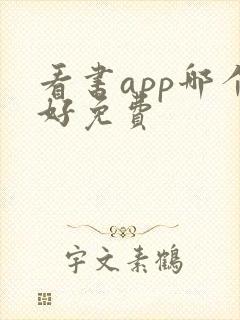 看书app哪个
好免费
宇文素鹤